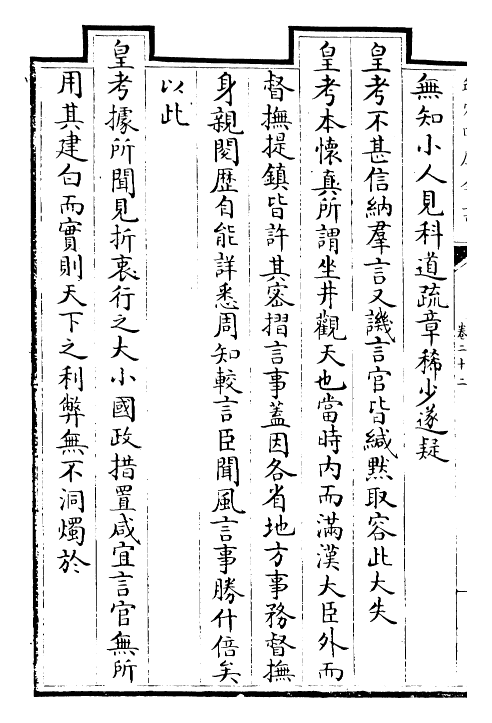 無知小人見科道疏章稀少遂疑
皇考不甚信納羣言又譏言官皆緘黙取容此大失
皇考本懷真所謂坐井觀天也當時内而滿漢大臣外而
督撫提鎮皆許其宻摺言事蓋因各省地方事務督撫
身親閱歴自能詳悉周知較言臣聞風言事勝什倍矣
以此
皇考據所聞見折衷行之大小國政措置咸宜言官無所
用其建白而實則天下之利弊無不洞燭於
卷二十二